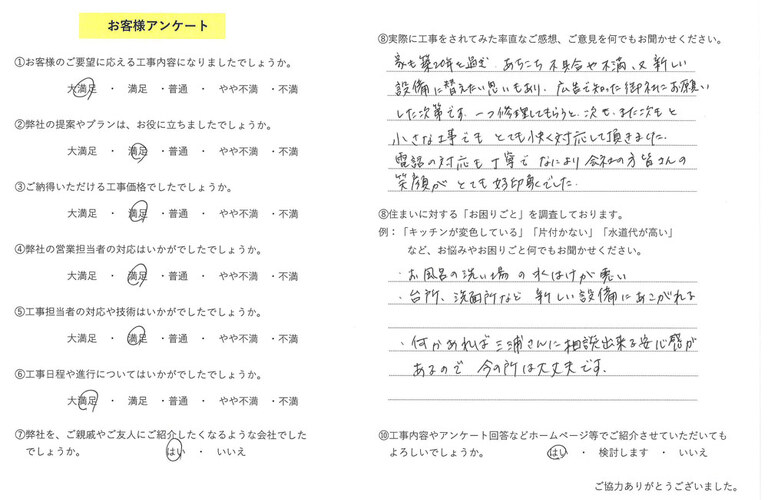 お客様アンケート
①お客様のご要望に応える工事内容になりましたでしょうか。
大満足 ・ 満足 ・普通 ・ やや不満 ・不満
②弊社の提案やプランは、お役に立ちましたでしょうか。
大満足 ・ 満足 ・普通 ・ やや不満 ・不満
③ご納得いただける工事価格でしたでしょうか。
大満足 ・ 満足 ・普通 ・ やや不満 ・不満
④弊社の営業担当者の対応はいかがでしたでしょうか。
大満足 ・ 満足 ・普通 ・ やや不満 ・不満
⑤工事担当者の対応や技術はいかがでしたでしょうか。
大満足 ・ 満足 ・普通 ・ やや不満 ・不満
⑥工事日程や進行についてはいかがでしたでしょうか。
大満足 ・ 満足 ・普通 ・ やや不満 ・不満
⑦弊社を、ご親戚やご友人にご紹介したくなるような会社でした
でしょうか。 はい ・ いいえ
⑧実際に工事をされてみた率直なご感想、ご意見を何でもお聞かせください。
家も築20年を過ぎ あちこち不具合や不満、又新しい
設備に替えたい思いもあり、広告で知った御社にお願い
した次第です。一つ修理してもらうと、次も、また次もと
小さな工事でも とても快く対応して頂きました。
電話の対応も丁寧で なにより会社の方皆さんの
笑顔が とても好印象でした。
⑧住まいに対する「お困りごと」を調査しております。
例：「キッチンが変色している」「片付かない」「水道代が高い」
など、お悩みやお困りごと何でもお聞かせください。
・お風呂の洗い場の水はけが悪い
・台所、洗面所など 新しい設備にあこがれる
・何かあれば三浦さんに相談出来る安心感が
あるので 今の所は大丈夫です。
⑩工事内容やアンケート回答などホームページ等でご紹介させていただいても
よろしいでしょうか。 はい ・ 検討します ・ いいえ
ご協力ありがとうございました。